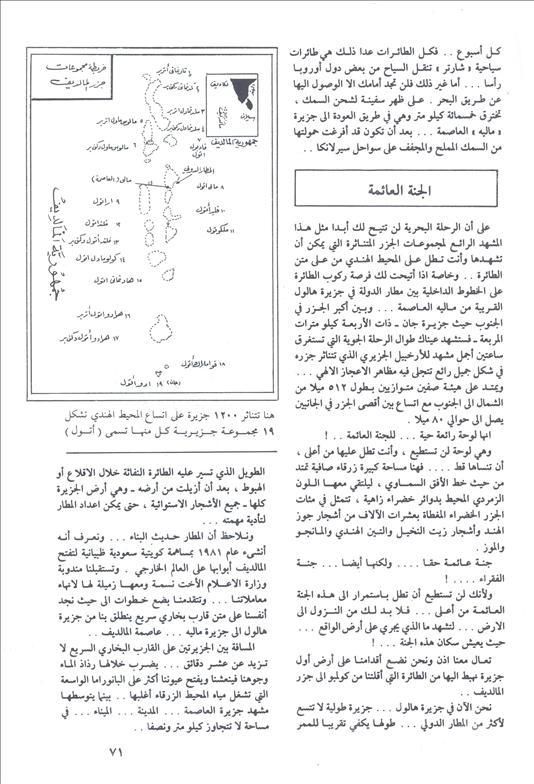 كل أسبوع .. فكل الطائرات عدا ذلك هي طائرات
سياحية « شارتر » تنقل السياح من بعض دول أوروبا
رأسا ... أما غير ذلك فلن تجد أمامك الا الوصول اليها
عن طريق البحر . على ظهر سفينة لشحن السمك ،
تخترق خمسمائة كيلو متر وهي في طريق العودة الى جزيرة
« ماليه » العاصمة ... بعد أن تكون قد أفرغت حمولتها
من السمك المملح والمجفف على سواحل سيرلانكا ..
الجنة العائمة
على أن الرحلة البحرية لن تتيح لك أبدا مثل هذا
المشهد الرائع لمجموعات الجزر المتناثرة التي يمكن أن
تشهدها وأنت تطل على المحيط الهندي من على متن
الطائرة .. وخاصة اذا أتيحت لك فرصة ركوب الطائرة
على الخطوط الداخلية بين مطار الدولة في جزيرة هالول
القريبة من ماليه العاصمة ... وبين أكبر الجزر في
الجنوب حيث جزيرة جان ـ ذات الأربعة كيلو مترات
المربعة ـ فستشهد عيناك طوال الرحلة الجوية التي تستغرق
ساعتين أجمل مشهد للأرخبيل الجزيري الذي تتناثر جزره
في شكل جميل رائع تتجلى فيه مظاهر الاعجاز الالهي ...
ويمتد على هيئة صفين متوازيين بطول ٥١٢ ميلا من
الشمال الى الجنوب مع اتساع بين أقصى الجزر في الجانبين
يصل الى حوالي ٨٠ ميلا .
انها لوحة رائعة حية ... للجنة العائمة .. !
وهي لوحة لن تستطيع ، وأنت تطل عليها من أعلى ،
أن تنساها قط .... فهنا مساحة كبيرة زرقاء صافية تمتد
من حيث خط الأفق السماوي ، ليلتقي معها اللون
الزمردي المحيط بدوائر خضراء زاهية ، تتمثل في مئات
الجزر الخضراء المغطاة بعشرات الآلاف من أشجار جوز
الهند وأشجار زيت النخيل والتين الهندي والمانجو
والموز .
جنة عائمة حقا .... ولكنها أيضا ... جنة
الفقراء .... !
ولأنك لن تستطيع أن تطل باستمرار الى هذه الجنة
العائمة من أعلى ... فلا بد لك من النزول الى
الارض ... لتشهد ما الذي يجري على أرض الواقع ...
حيث يعيش سكان هذه الجنة ... !
تعال معنا اذن ونحن نضع أقدامنا على أرض أول
جزيرة نهبط اليها من الطائرة التي أقلتنا من كولمبو الى جزر
المالديف ..
نحن الآن في جزيرة هالول ... جزيرة طولية لا تتسع
لأكثر من المطار الدولي ... طولها يكفي تقريبا للممر
خريطة مجموعات
جزر المالديف
جمهورية المالديف
المطار الدولي
مالى (العاصمة)
٨ مالى اتول
٩ ارى اتول
جمهورية المالديف
هنا تتناثر ١٢٠٠ جزيرة على اتساع المحيط الهندي تشكل
١٩ مجموعة جزيرية كل منها تسمى ( أتول )
الطويل الذي تسير عليه الطائرة النفاثة خلال الاقلاع أو
الهبوط ، بعد أن أزيلت من أرضه ـ وهي أرض الجزيرة
كلها ـ جميع الأشجار الاستوائية ، حتى يمكن اعداد المطار
لتأدية مهمته ...
ونلاحظ أن المطار حديث البناء ... ونعرف أنه
أنشىء عام ١٩٨١ بمساهمة كويتية سعودية ظبيانية لتفتح
المالديف أبوابها على العالم الخارجي . وتستقبلنا مندوبة
وزارة الاعلام الأخت نسمة ومعها زميلة لها لانهاء
معاملاتنا ... وتتقدمنا بضع خطوات الى حيث نجد
أنفسنا على متن قارب بخاري سريع ينطلق بنا من جزيرة
هالول الى جزيرة ماليه ... عاصمة المالديف ..
المسافة بين الجزيرتين على القارب البخاري السريع لا
تزيد عن عشر دقائق ... يضرب خلالها رذاذ الماء
وجوهنا فينعشنا ويفتح عيوننا أكثر على البانوراما الواسعة
التي تشغل مياه المحيط الزرقاء أغلبها .. بينما يتوسطها
مشهد جزيرة العاصمة ... المدينة ... الميناء ... في
مساحة لا تتجاوز كيلو متر ونصفا ..
٧١